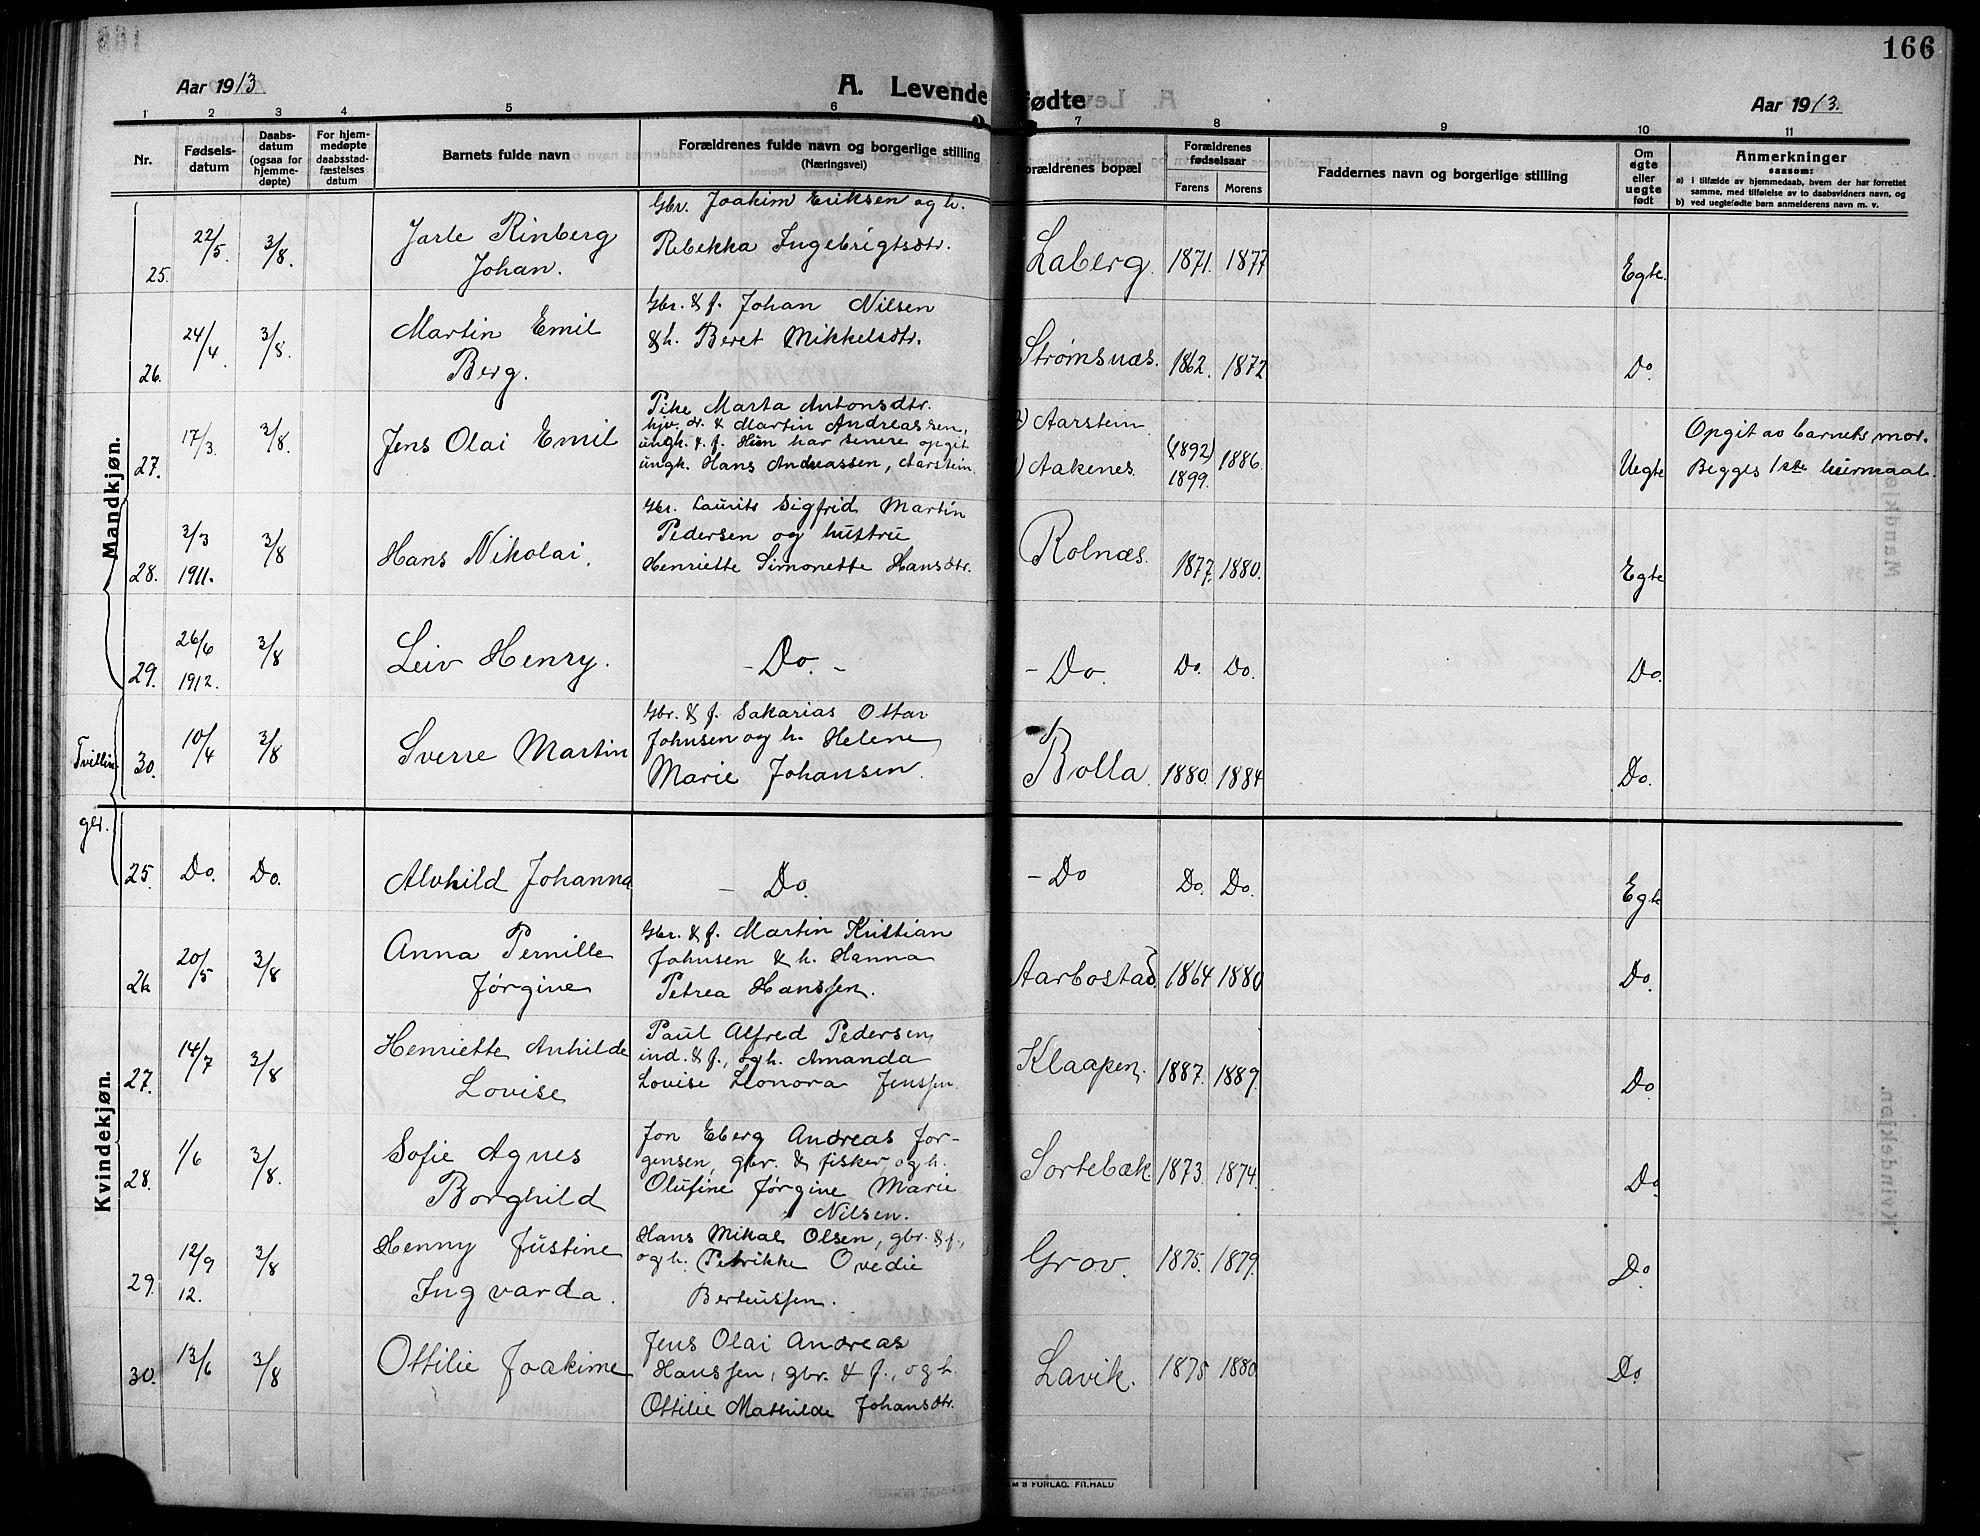 166
Aar 1913.
A. Levende fødte
Aar 1913.
1 2 3 4 5 6 7 8 9 10 11
Nr.
Fødsels-
datum
Daabs-
datum
(ogsaa for
hjemme-
døpte)
For hjem-
medøpte
daabsstad-
fæstelses
datum
Barnets fulde navn
Forældrenes fulde navn og borgerlige stilling
(Næringsvei)
orældrenes bopæl
Forældrenes
fødselsaar
Farens Morens
Faddernes navn og borgerlige stilling
Om
egte
eller
uegte
født
Anmerkninger
saasom:
a) i tilfælde av hjemmedaab, hvem der har forrettet
samme, med tilføielse av to daabsvidners navn, og
b) ved uegtefødte barn anmelderens navn m. v.
Mandkjøn.
25. 22/5. 3/8. Jarle Rinberg
Johan.
Gbr. Joakim Eriksen og h.
Rebekka Ingebrigtsdtr.
Laberg. 1871. 1877 Egte.
26. 24/4. 3/8. Martin Emil
Berg.
Gbr. & f. Johan Nilsen
& h. Beret Mikkelsdtr.
Strømsnæs. 1862. 1872 Do.
27. 17/3. 3/8. Jens Olai Emil
Pike Marta Antonsdtr.
hjv. dr. & Martin Andreassen,
ungk. & f. Hun har senere opgit
ungk. Hans Andreassen, Aarstein.
Aarstein
Aakenes.
(1892)
1899. 1886. Uegte
Opgit av barnets mor.
Begges 1ste leiermaal.
28. 3/3
1911. 3/8 Hans Nikolai.
Gbr. Laurits Sigfrid Martin
Pedersen og hustru
Henriette Simonette Hansdtr.
Rolnæs. 1877. 1880. Egte
29. 26/6
1912. 3/8 Leiv Henry. - Do. - - Do. Do. Do. Do.
Tvillin-
30. 10/4 3/8 Sverre Martin
Gbr. & f. Sakarias Ottar
Johnsen og h. Helene
Marie Johansen.
Rolla. 1880. 1884 Do.
ger.
Kvindekjøn.
25. Do. Do. Alvhild Johanna - Do. - Do Do. Do. Egte
26 20/5 3/8 Anna Pernille
Jørgine
Gbr. & f. Martin Kristian
Johnsen & h. Hanna
Petrea Hanssen.
Aarbostad 1864 1880 Do.
27. 14/7 3/8 Henriette Anhilde
Lovise
Paul Alfred Pedersen,
ind. & f., og h. Amanda
Lovise Leonora Jenssen.
Klaapen. 1887. 1889. Do.
28. 1/6 3/8. Sofie Agnes
Borghild
Jon Eberg Andreas Jør-
gensen, gbr. & fisker og h.
Olufine Jørgine Marie
Nilsen.
Sortebæk 1873. 1874. Do
29. 12/9
12. 3/8 Henny Justine
Ingvarda.
Hans Mikal Olsen, gbr. & f.,
og h. Petrikke Ovedie
Berteussen.
Grov. 1875. 1879. Do.
30. 13/6 3/8 Ottilie Joakime
Jens Olai Andreas
Hanssen, gbr. & f., og h.
Ottilie Mathilde Johansdtr.
Lavik. 1875 1880. Do.
EM'S FORLAG. FR. HALD